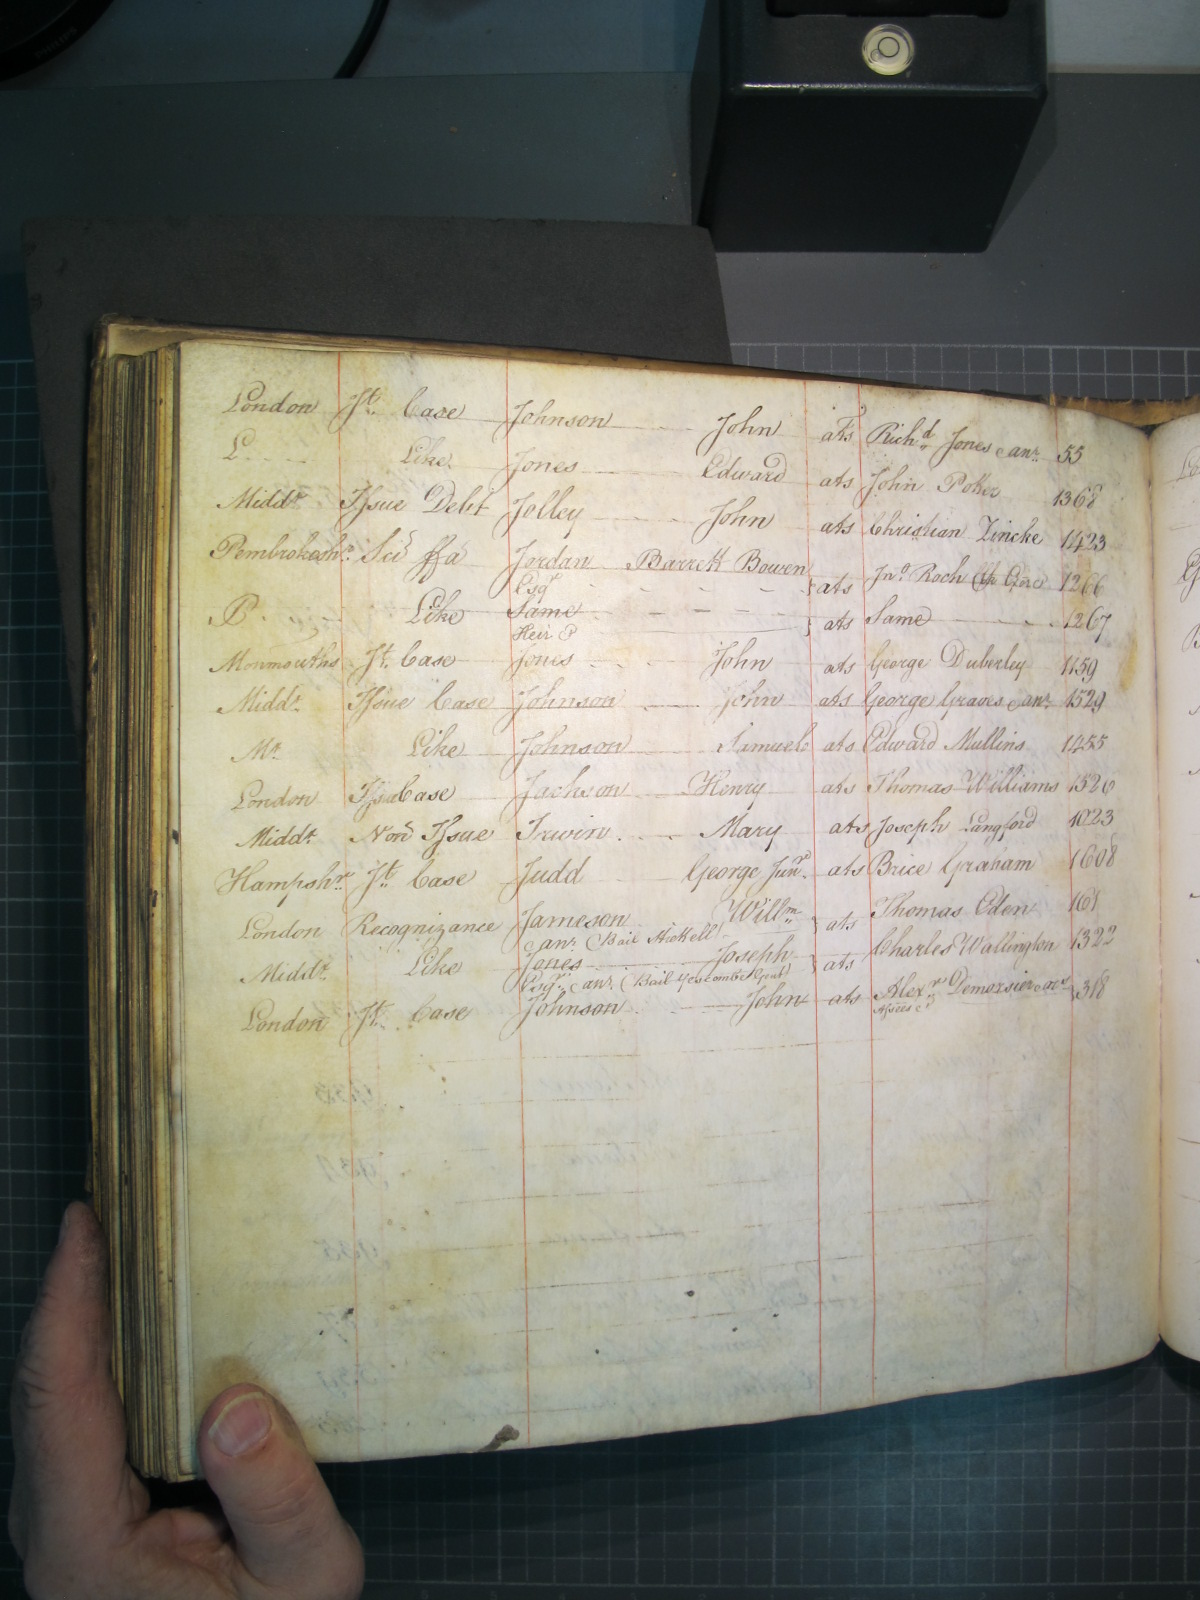 London Jt. Case Johnson John ats Richd. Jones & anr. 55
L. Like Jones Edward ats John Poker 1368
Middx. Issue Debt Jolley John ats Christian Zincke 1423
Pembrokeshr. Sci ffa Jordan Barrett Bowen
Esqr ats Jno. Roch 1266
P. Like Same ats Same 1267
Heir &
Monmouths Jt. Case Jones John ats George Duberley 1159
Middx. Issue Case Johnson John ats George Graves & anr. 1529
Mx. Like Johnson Samuel ats Edward Mullins 1455
London Case Jackson Henry ats Thomas Williams 1526
Middx. Issue Irwin Mary ats Joseph Langford 1023
Hampshr. Jt. Case Judd George Junr. ats Brice Graham 1608
London Recognizance Jameson Willm. ats Thomas Eden 161
& anr. (Bail
Middx. Like Jones Joseph ats Charles Wallington 1322
Esqr. & anr. (Bail
London Jt. Case Johnson John ats Alexr. 318
Assees &c